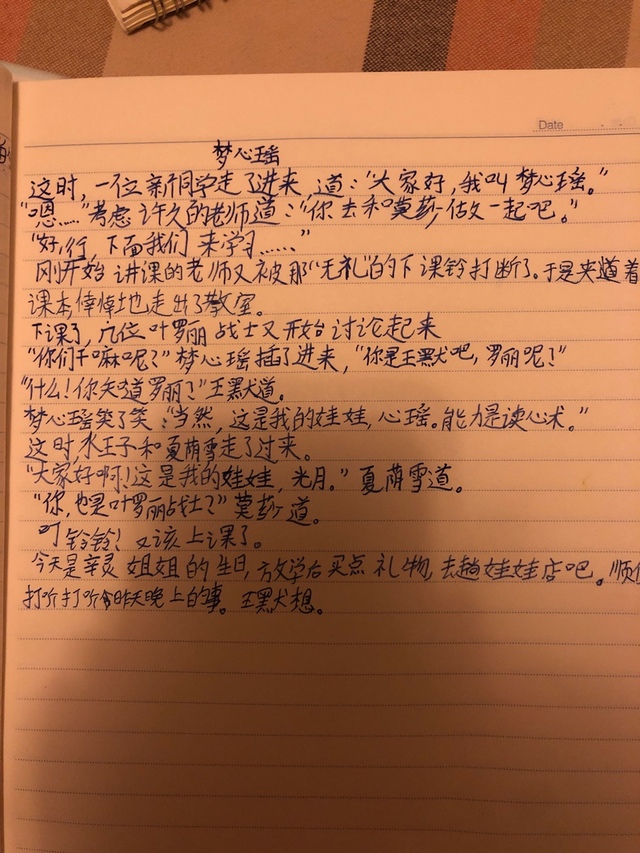 Date
梦心瑶
这时，一位新同学走了进来，道：“大家好，我叫梦心瑶。”
“嗯……”考虑许久的老师道：“你去和莫莎做一起吧。”
“好，行，下面我们来学习……”
刚开始讲课的老师又被那“无礼”的下课铃打断了。于是夹道着
课本悻悻地走出了教室。
下课了，几位叶罗丽战士又开始讨论起来
“你们干嘛呢？”梦心瑶插了进来，“你是王黑犬吧，罗丽呢？”
“什么！你知道罗丽？”王黑犬道。
梦心瑶笑了笑：“当然，这是我的娃娃，心瑶。能力是读心术。”
这时水王子和夏荫雪走了过来。
“大家好啊！这是我的娃娃，光月。”夏荫雪道。
“你，也是叶罗丽战士？”莫莎道。
叮铃铃！又该上课了。
今天是辛灵姐姐的生日，放学后买点礼物，去趟娃娃店吧。顺便
打听打听昨天晚上的事。王黑犬想。